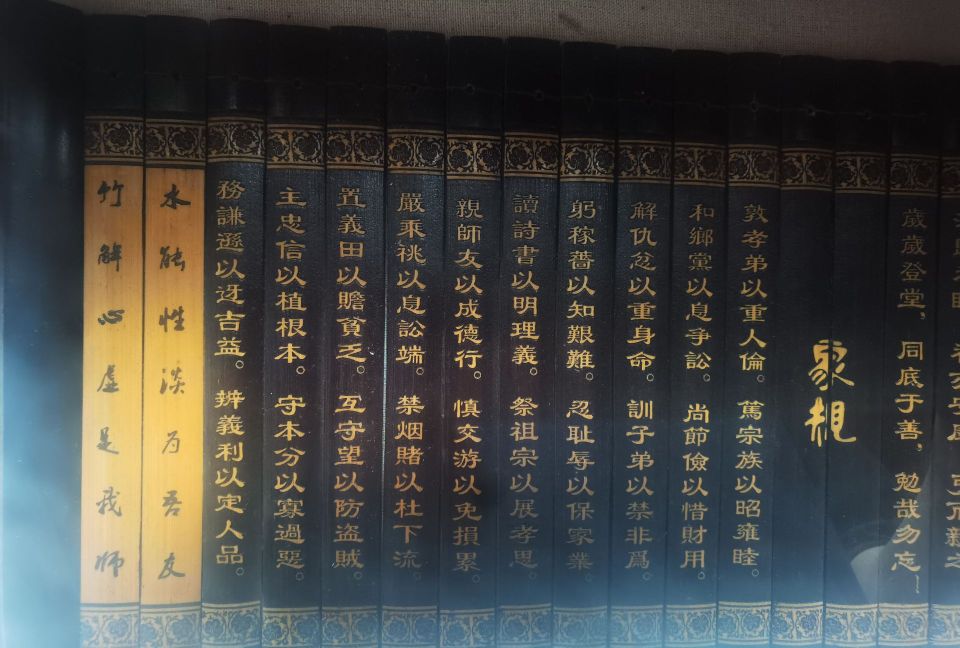 歲歲登堂，同底于善，勉哉勿忘
家規
敦孝弟以重人倫。篤宗族以昭雍睦。
和鄉黨以息爭訟。尚節儉以惜財用。
解仇忿以重身命。訓子弟以禁非爲。
躬稼薔以知艱難。忍耻辱以保家業。
讀詩書以明理義。祭祖宗以展孝思。
親師友以成德行。慎交游以免損累。
嚴乘祧以息訟端。禁烟賭以杜下流。
置義田以贍貧乏。互守望以防盗賊。
主忠信以植根本。守本分以寡過惡。
務謙遜以迓吉益。辨義利以定人品。
水能性淡为吾友
竹解心虛是我師